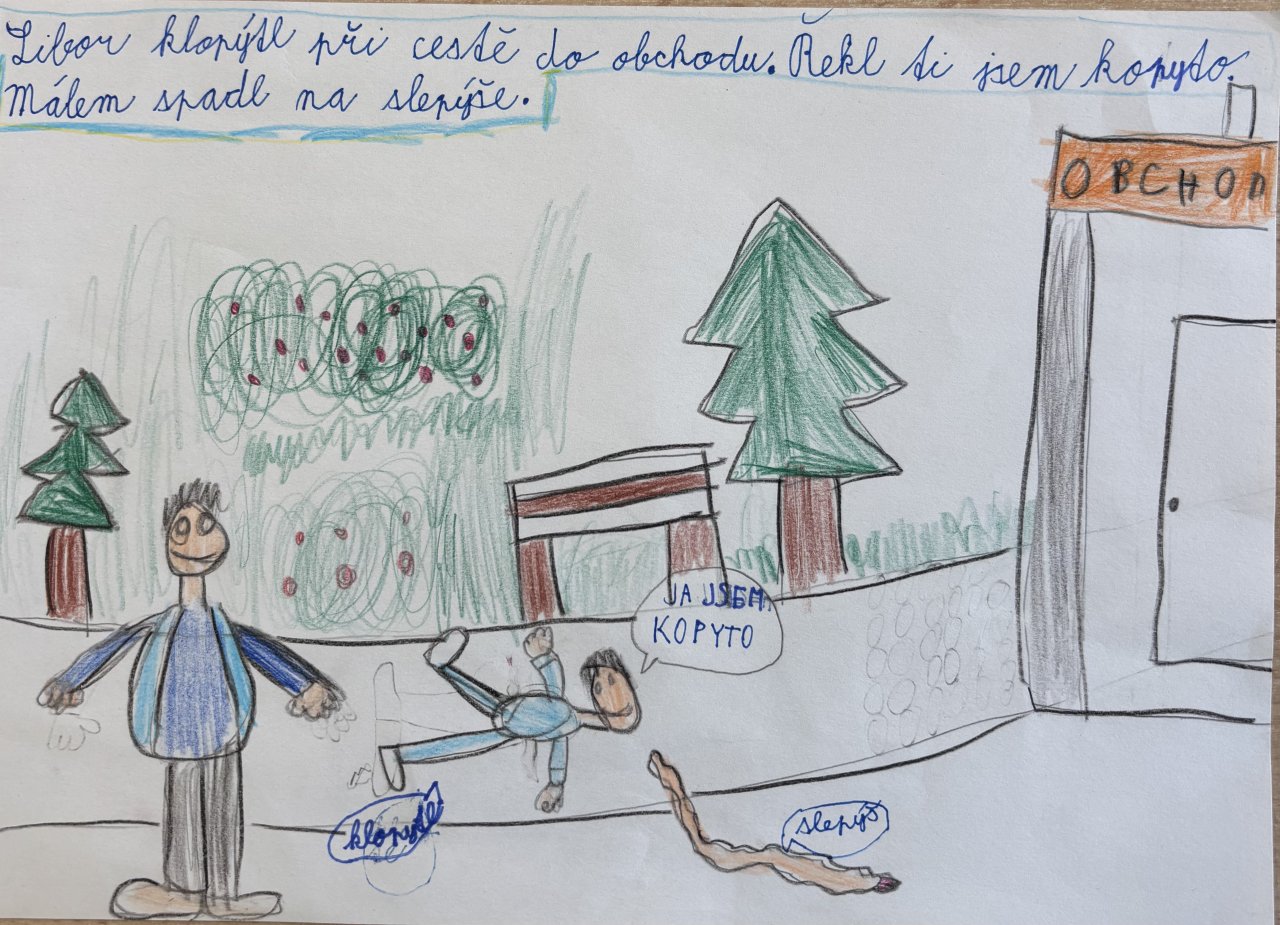 Libor klopýtl při cestě do obchodu. Řekl ti jsem kopyto.
Málem spadl na slepýše.
OBCHOD
JA JSEM
KOPYTO
klopýtl
slepýš